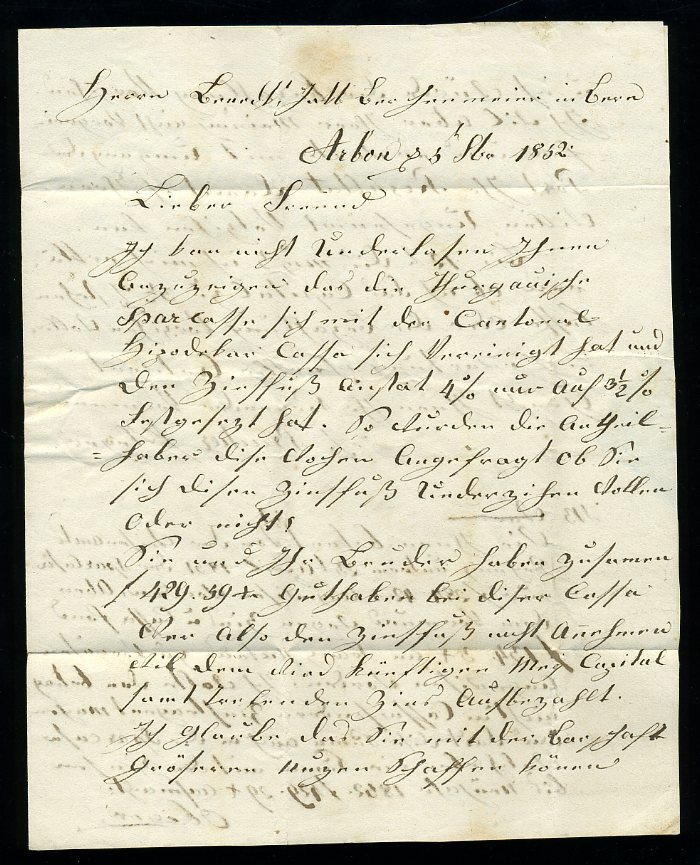 Herrn Benedkt Jatt Bartenmeier in Bern
Arbon d 5t 8br 1852
Lieber Freund
Ich kan nicht Underlasen Ihnen
Anzuzeigen das die Thurgauische
Sparcasse sich mit der Cantonal
Hipodekar Cassa sich Vereinigt hat und
den Zinsfuß Anstat 4% nur Auf 3½%
Festgesezt hat. So wurden die Antheil=
=haber dise Wochen Angefragt ob Sie
sich disen Zinsfuß Underzihen Wollen
Oder nicht,
Sie und Ihr Bruder haben zusamen
f 429.39 x Guthaben bei diser Cassa
Wer Also den Zinsfuß nicht Annehmen
Wil dem Wird künftigen Mey Capital
samt trefenden Zins Aufbezahlt.
Ich Glaube das Sie mit der Barschaft
Gröseren Nuzen Schaffen könen